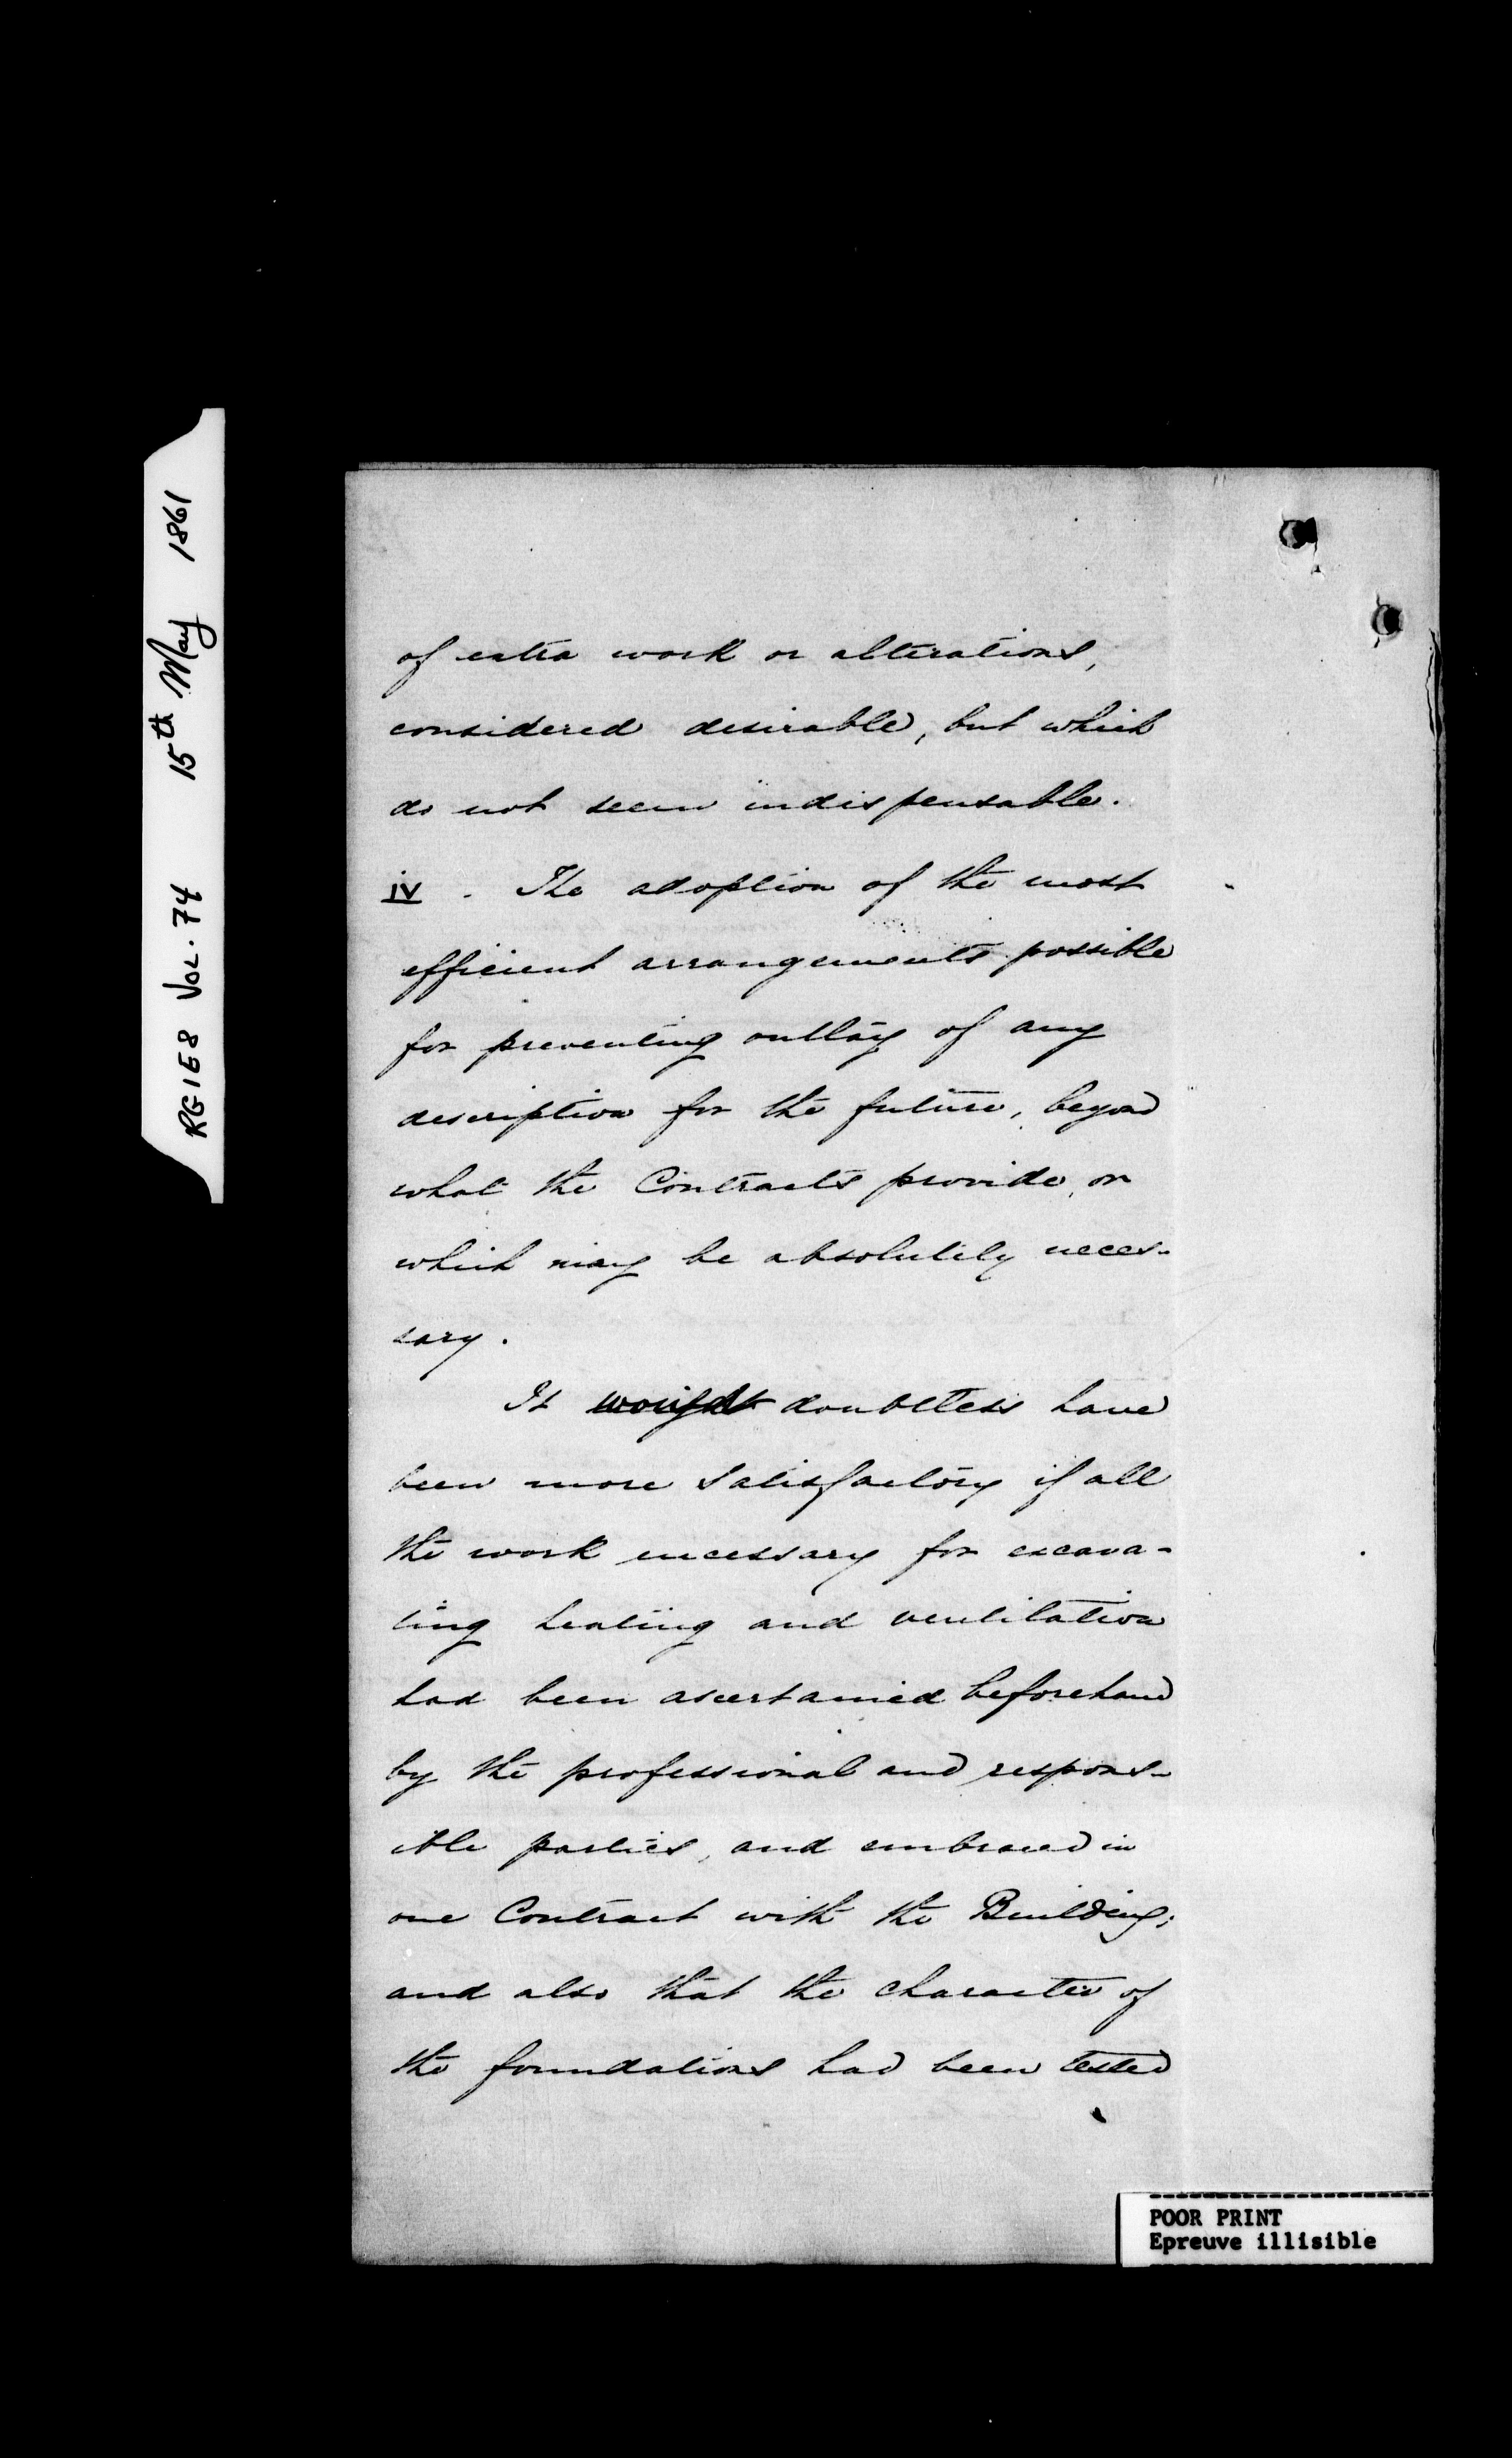 RG1E8 VOL. 74 15th May 1861
of extra work or alterations,
considered desirable, but which
do not seem indispensable.
iv. The adoption of the most
efficient arrangements possible
for preventing outlay of any
description for the future, beyond
what the Contracts provide, or
which may be absolutely neces-
sary.
It would doubtless have
been more satisfactory if all
the work necessary for excava-
ting heating and ventilation
had been ascertained beforehand
by the professional and respons-
ible parties, and embraced in
one Contract with the Building;
and also that the character of
the foundations had been tested
POOR PRINT
Epreuve illisible